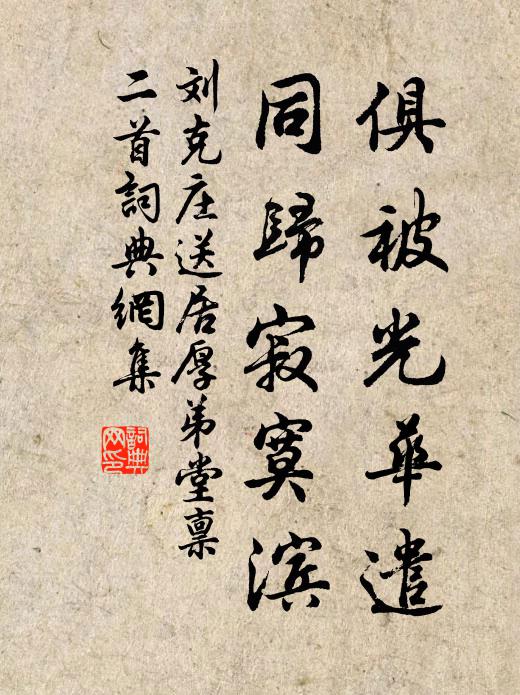 俱被光華遣
同歸寂寞滨
刘克庄送居厚弟堂禀
二首詞典網集
詞典
网印